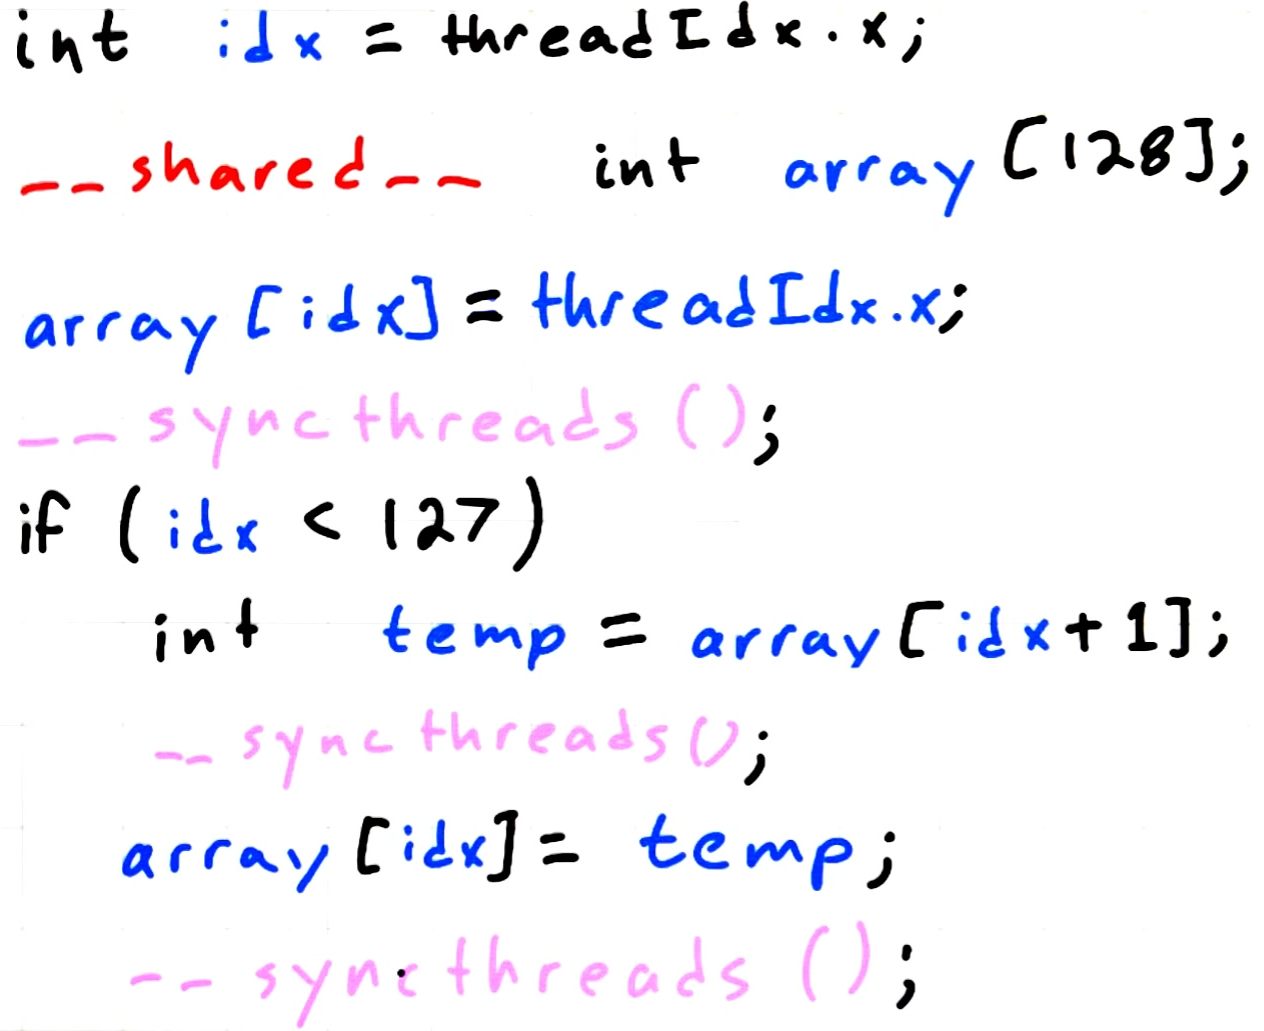 int idx = threadIdx.x;
__shared__ int array[128];
array[idx] = threadIdx.x;
__syncthreads();
if (idx < 127)
int temp = array[idx+1];
__syncthreads();
array[idx] = temp;
__syncthreads();